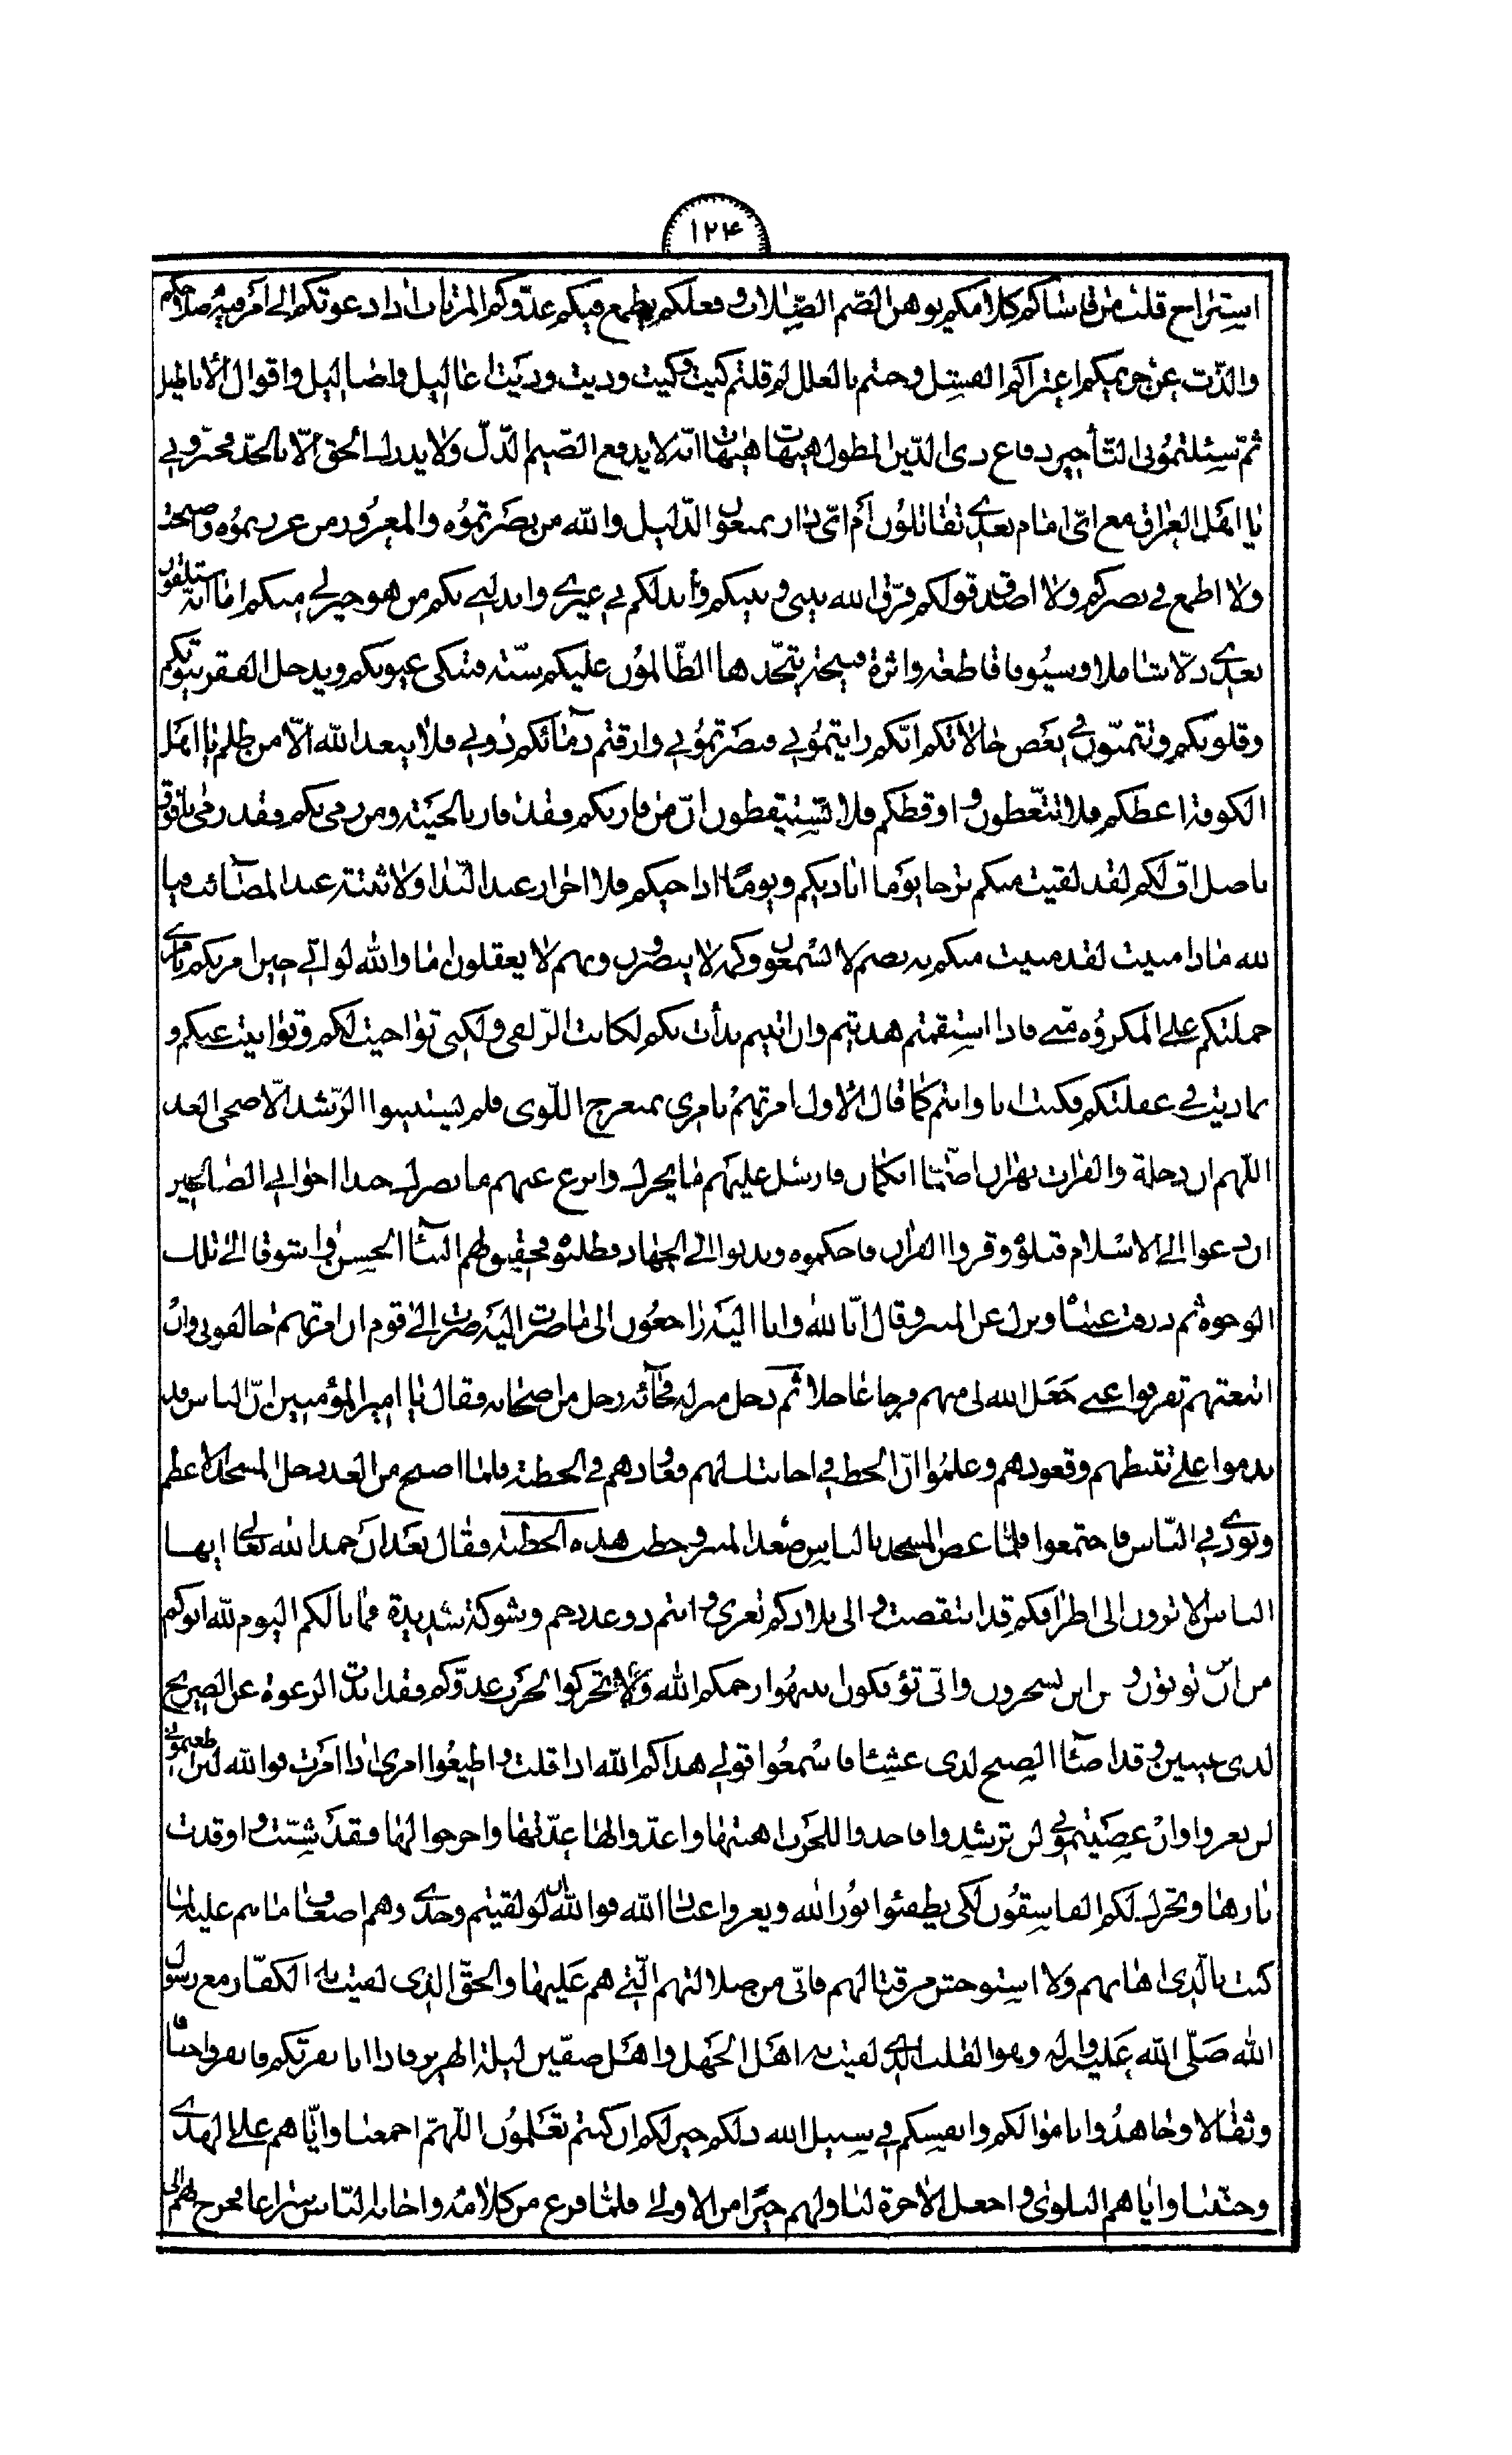 ١٢٤
استراح قلب من قاساكم كلامكم يوهن الصم الصلاب و فعلكم يطمع فيكم عدوكم المرتاب اذا دعوتكم الى امر فيه صلاحكم
والذب عن حريمكم اعتراكم الفشل وجئتم بالعلل ثم قلتم كيت وكيت وذيت وذيت اعاليل واضاليل واقوال الاباطيل
ثم سئلتموني التأخير دفاع ذي الدين المطول هيهات هيهات انه لا يدفع الضيم الذل ولا يدرك الحق الا بالجد فخبروني
يا اهل العراق مع اي امام بعدي تقاتلون أم اي دار تمنعون الذليل والله من نصرتموه والمغرور من غررتموه واصبحت
ولا اطمع في نصركم ولا اصدق قولكم فرق الله بيني و بينكم وأبدلكم بي غيري وابدلني بكم من هو خير لي منكم اما انه ستلقون
بعدي ذلا شاملا وسيوفا قاطعة واثرة قبيحة يتخذها الظالمون عليكم سنة فتبكي عيونكم ويدخل الفقر بيوتكم
وقلوبكم وتتمنون في بعض حالاتكم انكم رايتموني فنصرتموني وارقتم دمائكم دوني فلا يبعد الله الا من ظلم يا اهل
الكوفة اعظكم فلا تتعظون و اوقظكم فلا تستيقظون ان من فاز بكم فقد فاز بالخيبة ومن رمى بكم فقد رمى بافوق
ناصل اف لكم لقد لقيت منكم ترحا يوما اناديكم ويوما اناجيكم فلا احرار عند النداء ولا ثقة عند المصائب فيا
لله ماذا منيت لقد منيت منكم بصم لا تسمعون وكمه لا يبصرون وبهم لا يعقلون اما والله لو اني حين امرتكم بامري
حملتكم على المكروه منه فاذا استقمتم هديتم وان ابيتم بدأت بكم لكانت الزلفى ولكني تواخيت لكم وتوانيت عنكم و
تماديت في غفلتكم فكنت انا وانتم كما قال الاول امرتهم بامري بمنعرج اللوى فلم تستبينوا الرشد الا ضحى الغد
اللهم ان دجلة والفرات نهران اصمان ابكمان فارسل عليهم ماء بحرك وانزع عنهم ماء نصرك حبذا اخواني الصالحين
ان دعوا الى الاسلام قبلوه وقرؤا القران فاحكموه وندبوا الى الجهاد فطلبوه فحقيق لهم الثناء الحسن واشوقا الى تلك
الوجوه ثم ذرفت عيناه ونزل عن المنبر وقال انا لله وانا اليه راجعون الى ما صرت اليه صرت الى قوم ان امرتهم خالفوني وان
اتبعتهم تفرقوا عني جعل الله لي منهم فرجا عاجلا ثم دخل منزله فجائه رجل من اصحابه فقال يا امير المؤمنين ان الناس قد
ندموا على تثبطهم وقعودهم وعلموا ان الحظ في اجابتك لهم فعاودهم في الخطبة فلما اصبح من الغد دخل المسجد الاعظم
ونودي في الناس فاجتمعوا فلما غص المسجد بالناس صعد المنبر وخطب هذه الخطبة فقال بعد ان حمد الله تعالى ايها
الناس الا ترون الى اطرافكم قد انتقصت و الى بلادكم تغزى و انتم ذو عدد جم وشوكة شديدة فما بالكم اليوم لله ابوكم
من اين تؤتون و من اين تسحرون وانى تؤفكون انتبهوا رحمكم الله وتحركوا لحرب عدوكم فقد ابدت الرغوة عن الصريح
لذي عينين وقد اضاء الصبح لذي عشاء فاسمعوا قولي هداكم الله اذا قلت و اطيعوا امري اذا امرت فوالله لئن اطعتموني
لن تغووا وان عصيتموني لن ترشدوا فاخذوا للحرب اهبتها واعدوا لها عدتها واخرجوا لها فقد شبت و اوقدت
نارها وتحرك لكم الفاسقون لكي يطفئوا نور الله ويعزوا عباد الله فوالله ان لو لقيتهم وحدي وهم اضعاف ما هم عليه لما
كنت بالذي اهابهم ولا استوحش من قتالهم فاني من ضلالتهم التي هم عليها والحق الذي لقيت به الكفار مع رسول
الله صلى الله عليه واله وهو القلب الذي لقيت به اهل الجمل واهل صفين ليلة الهرير فاذا انا نفرتكم فانفروا خفافا
وثقالا وجاهدوا باموالكم وانفسكم في سبيل الله ذلكم خير لكم ان كنتم تعلمون اللهم اجمعنا واياهم على الهدى
وجنبنا واياهم البلوى و اجعل الاخرة لنا ولهم خيرا من الاولى فلما فرغ من كلامه واجابه الناس سراعا فخرج بهم الى